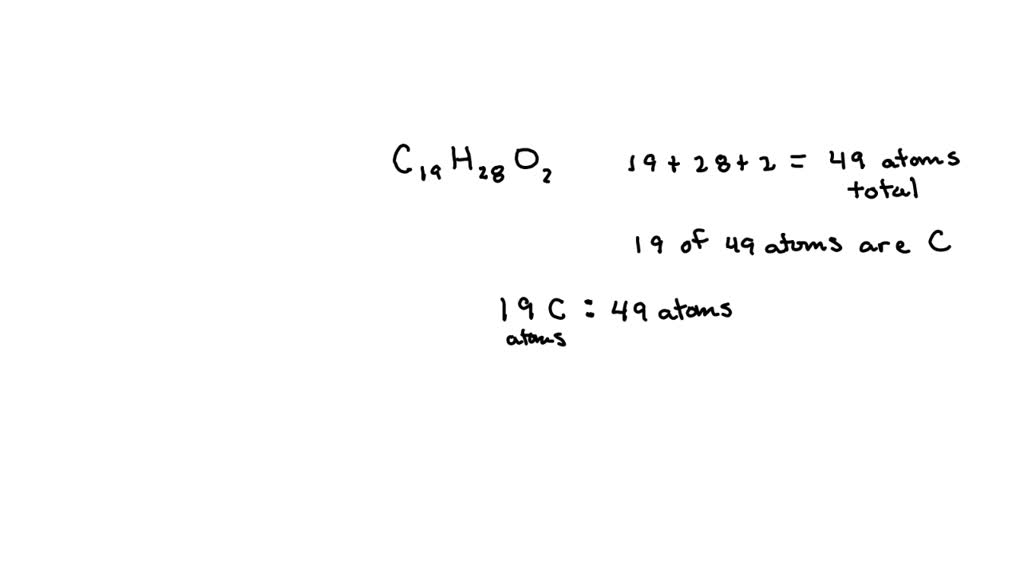 C₁₉H₂₈O₂ 19 + 28 + 2 = 49 atoms
total
19 of 49 atoms are C
19 C : 49 atoms
atoms